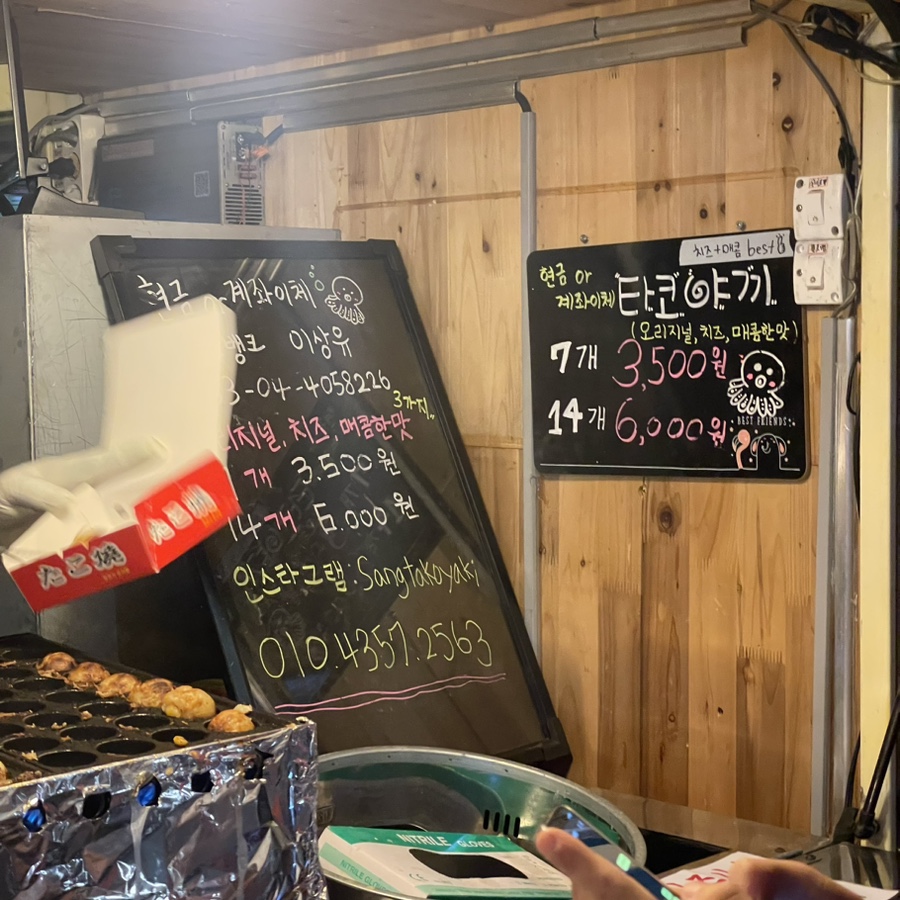 현금 or 계좌이체
뱅크 이상유
3-04-4058226
3가지..
지널, 치즈, 매콤한맛
개 3.500원
14개 6.000원
인스타그램: Sangtakoyaki
010.4357.2563
치즈+매콤 best
현금 or
계좌이체
타코야끼
(오리지널, 치즈, 매콤한맛)
7개 3,500원
14개 6,000원
BEST FRIENDS
たこ焼
たこ焼
NITRILE GLOVES
NITRILE GLO